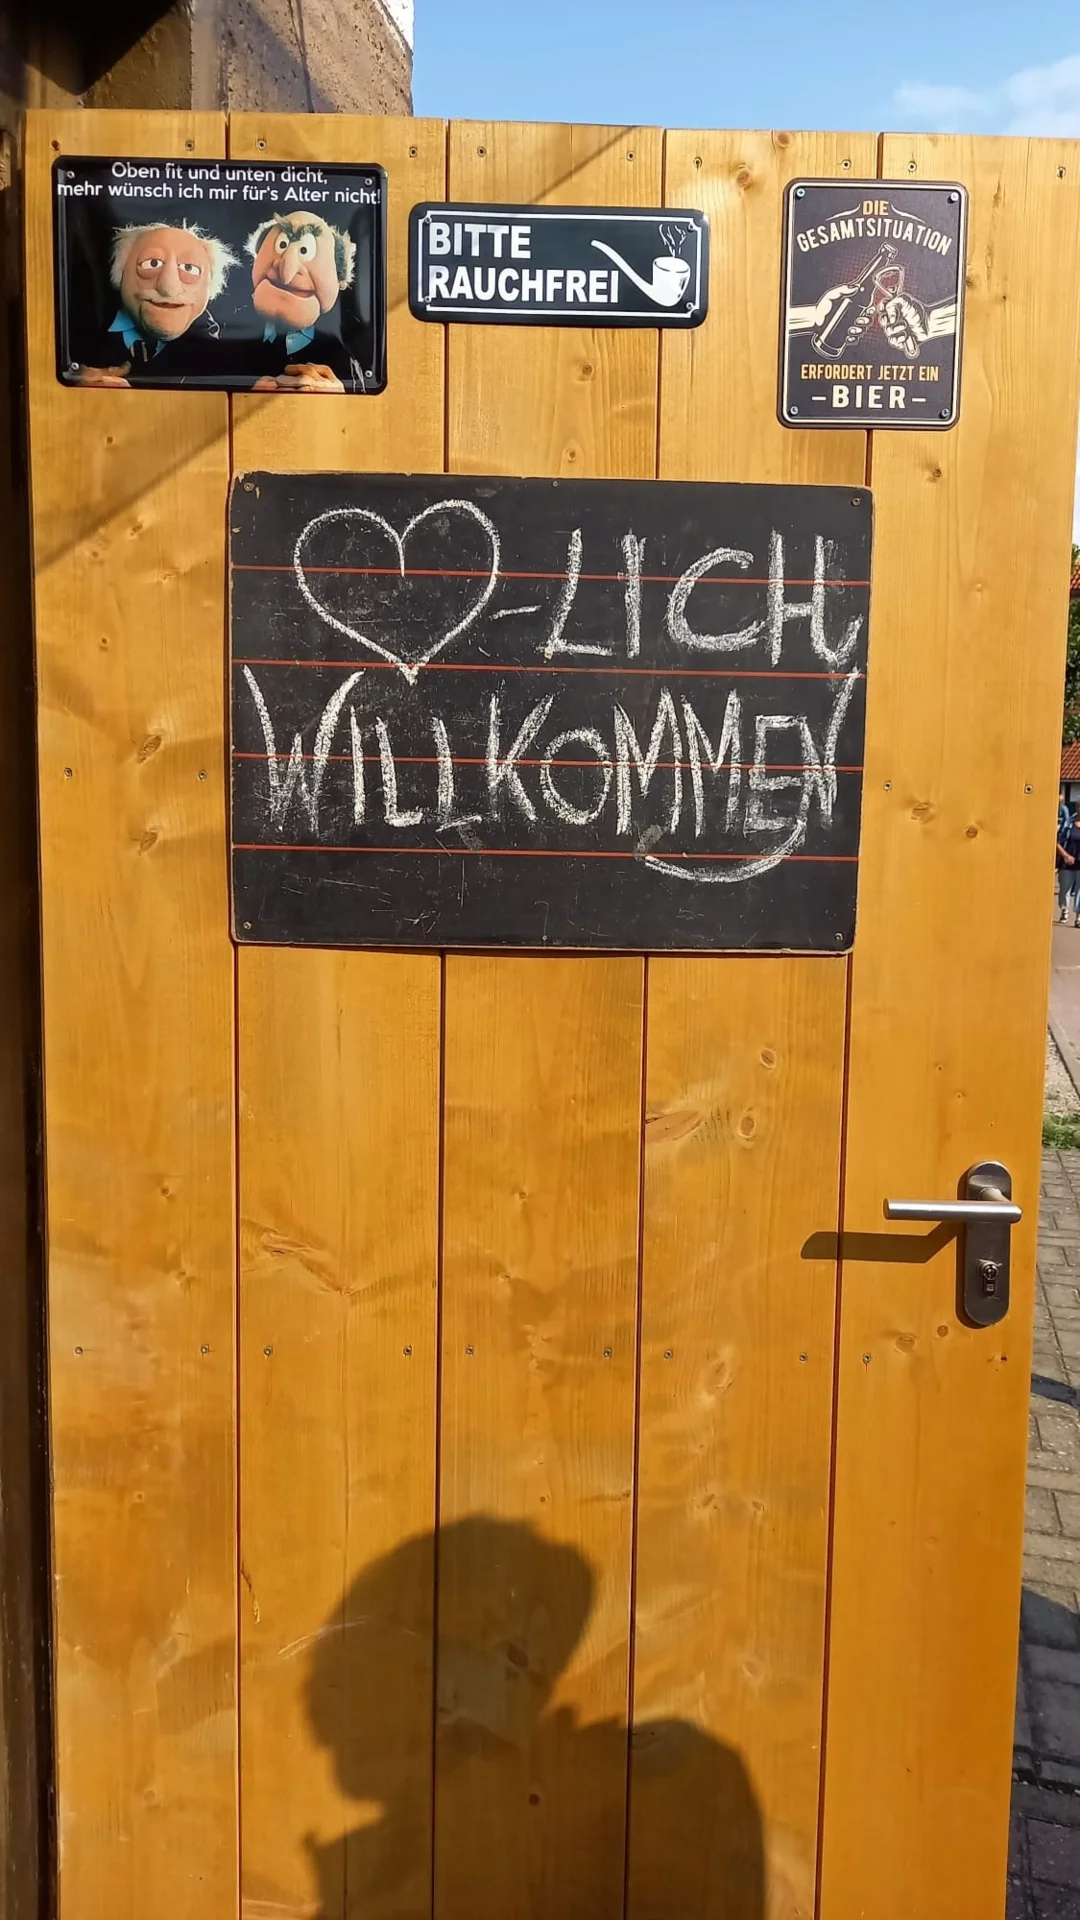 Oben fit und unten dicht,
mehr wünsch ich mir für's Alter nicht!
BITTE
RAUCHFREI
DIE
GESAMTSITUATION
ERFORDERT JETZT EIN
-BIER-
-LICH
WILLKOMMEN